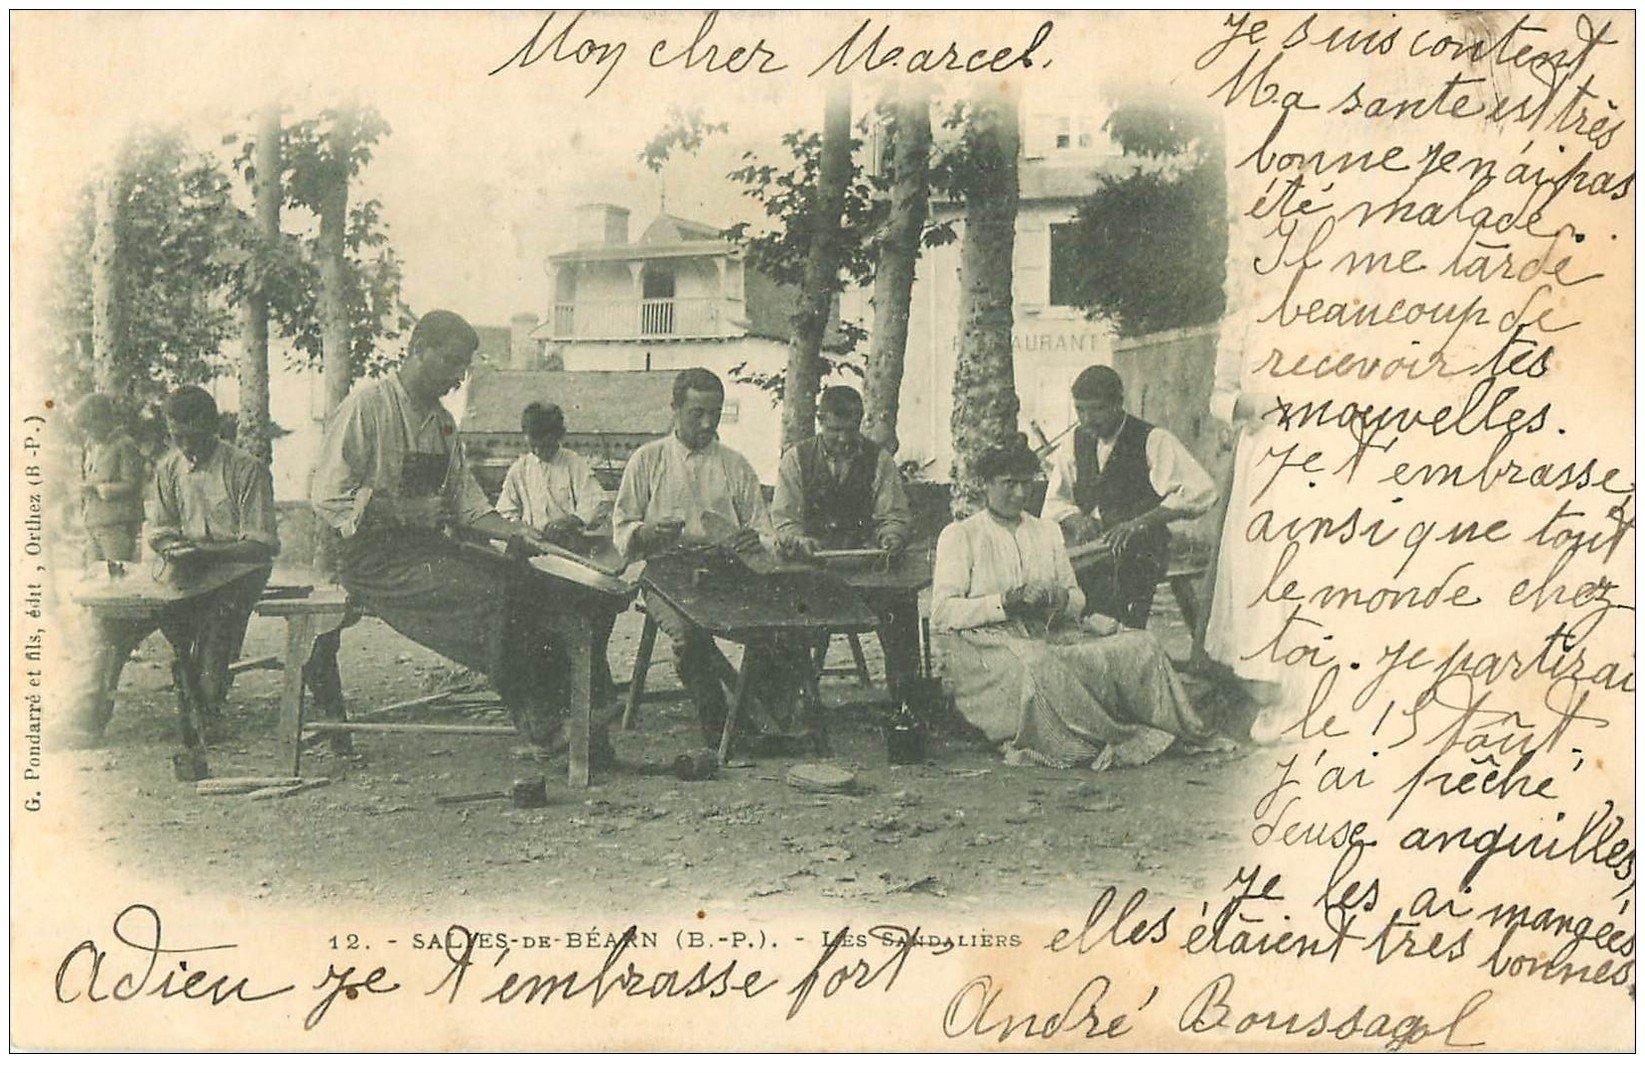 Mon cher Marcel.
Je suis content
Ma sante est très
bonne je n'ai pas
été malade.
Il me tarde
beaucoup de
recevoir tes
nouvelles.
Je t'embrasse
ainsi que tout
le monde chez
toi. je partirai
le 15 tout.
J'ai pêché
deuse anguilles,
je les ai mangées
elles étaient très bonnes.
Adieu je t'embrasse fort
André Boussagol
RESTAURANT
12. - SALIES-DE-BÉARN (B.-P.). - LES SANDALIERS
G. Pondarré et fils, édit, Orthez (B.-P.)